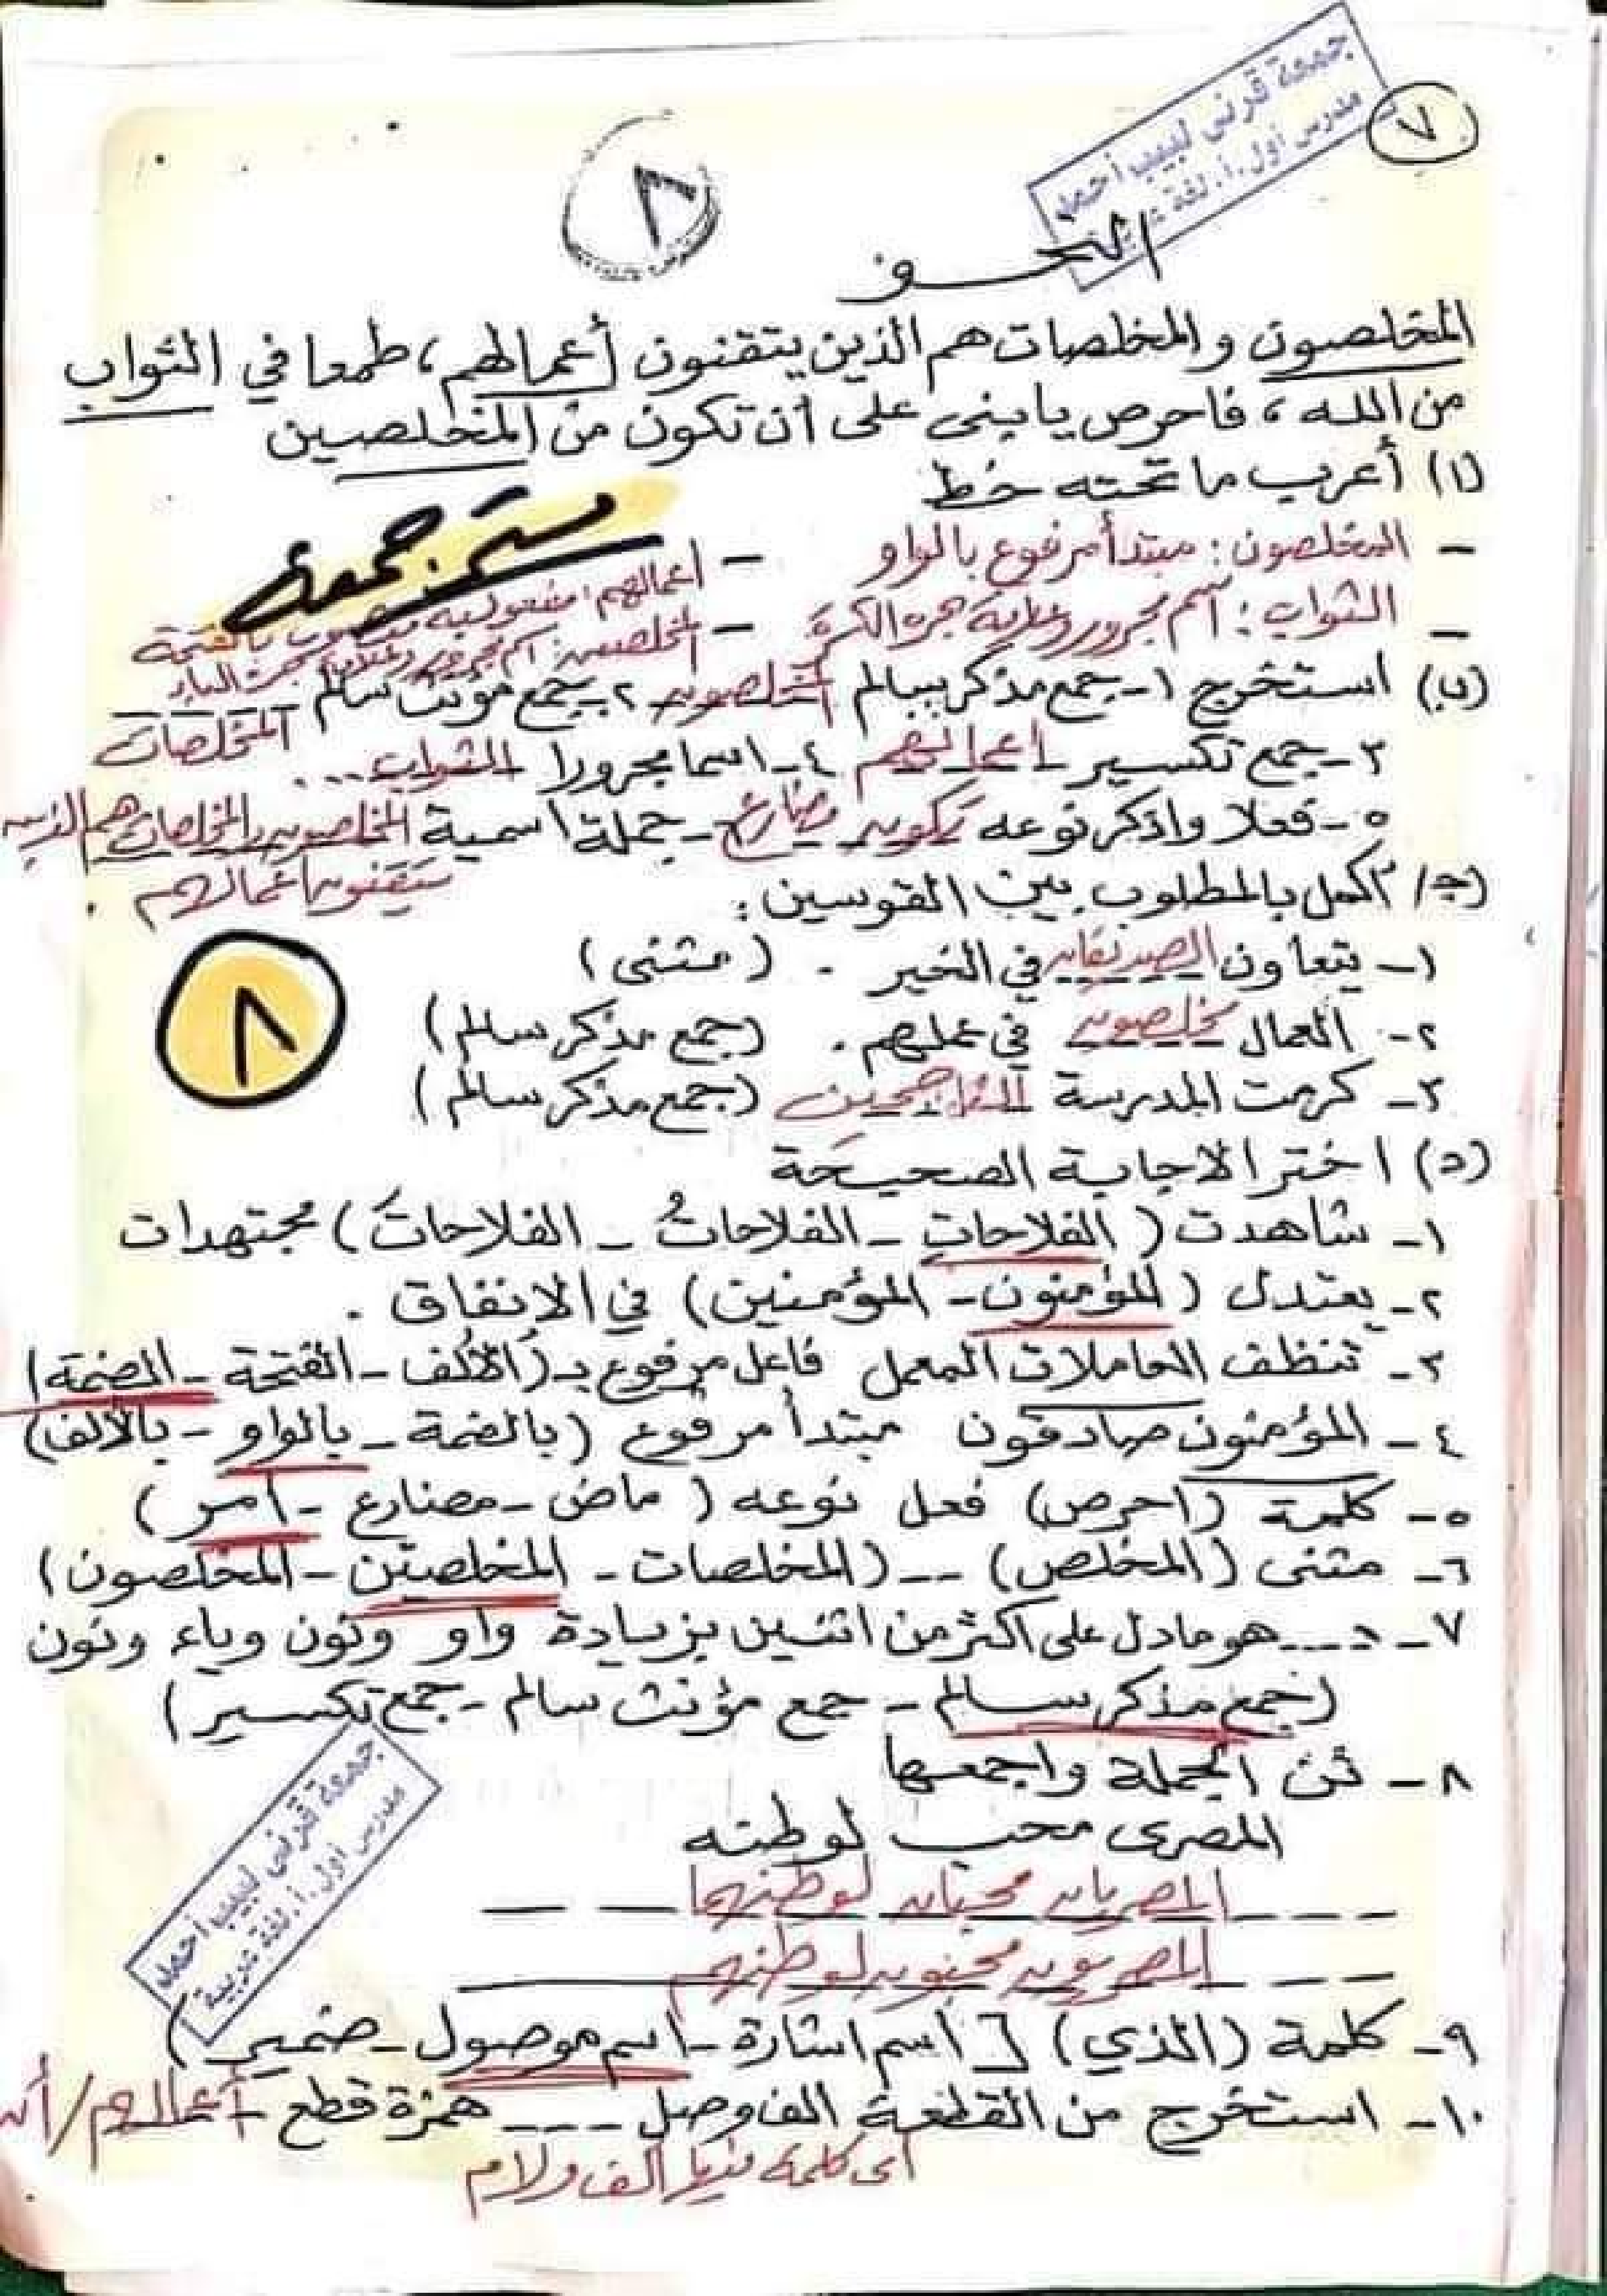 جمعة قرني لبيب أحمد
مدرس أول.أ.لغة عربية
٧
٨
النحو
المخلصون والمخلصات هم الذين يتقنون أعمالهم، طمعا في الثواب
من الله، فاحرص يا بنى على أن تكون من المخلصين
(١) أعرب ما تحته خط
مستر جمعة
- المخلصون: مبتدأ مرفوع بالواو - أعمالهم: مفعول به منصوب بالفتحة
- الثواب: اسم مجرور وعلامة جره الكسرة - المخلصين: اسم مجرور وعلامة جره الياء
(ب) استخرج ١- جمع مذكر سالم المخلصون ٢- جمع مؤنث سالم المخلصات
٣- جمع تكسير أعمالهم ٤- اسما مجرورا الثواب...
٥- فعلا واذكر نوعه تكون مضارع - جملة اسمية المخلصون والمخلصات هم الذين
يتقنون أعمالهم
(ج) أكمل بالمطلوب بين القوسين:
١- يتعاون الصديقان في الخير . (مثنى)
٢- العمال مخلصون في عملهم. (جمع مذكر سالم)
٣- كرمت المدرسة الناجحين (جمع مذكر سالم)
٨
(د) اختر الاجابة الصحيحة
١- شاهدت (الفلاحاتِ - الفلاحاتُ - الفلاحاتَ) مجتهدات
٢- يعتدل (المؤمنون - المؤمنين) في الانفاق .
٣- تنظف العاملات المعمل فاعل مرفوع بـ (الألف - الفتحة - الضمة)
٤- المؤمنون صادقون مبتدأ مرفوع (بالضمة - بالواو - بالألف)
٥- كلمة (احرص) فعل نوعه (ماض - مضارع - أمر)
٦- مثنى (المخلص) -- (المخلصات - المخلصين - المخلصون)
٧- ---- هو مادل على اكثر من اثنين بزيادة واو ونون وياء ونون
(جمع مذكر سالم - جمع مؤنث سالم - جمع تكسير)
٨- ثن الجملة واجمعها
المصرى محب لوطنه
المصريان محبان لوطنهما
المصريون محبون لوطنهم
جمعة قرني لبيب أحمد
مدرس أول.أ.لغة عربية
٩- كلمة (الذي) [اسم اشارة - اسم موصول - ضمير)
١٠- استخرج من القطعة الف وصل --- همزة قطع أعمالهم / أن
أى كلمة فيها الف ولام